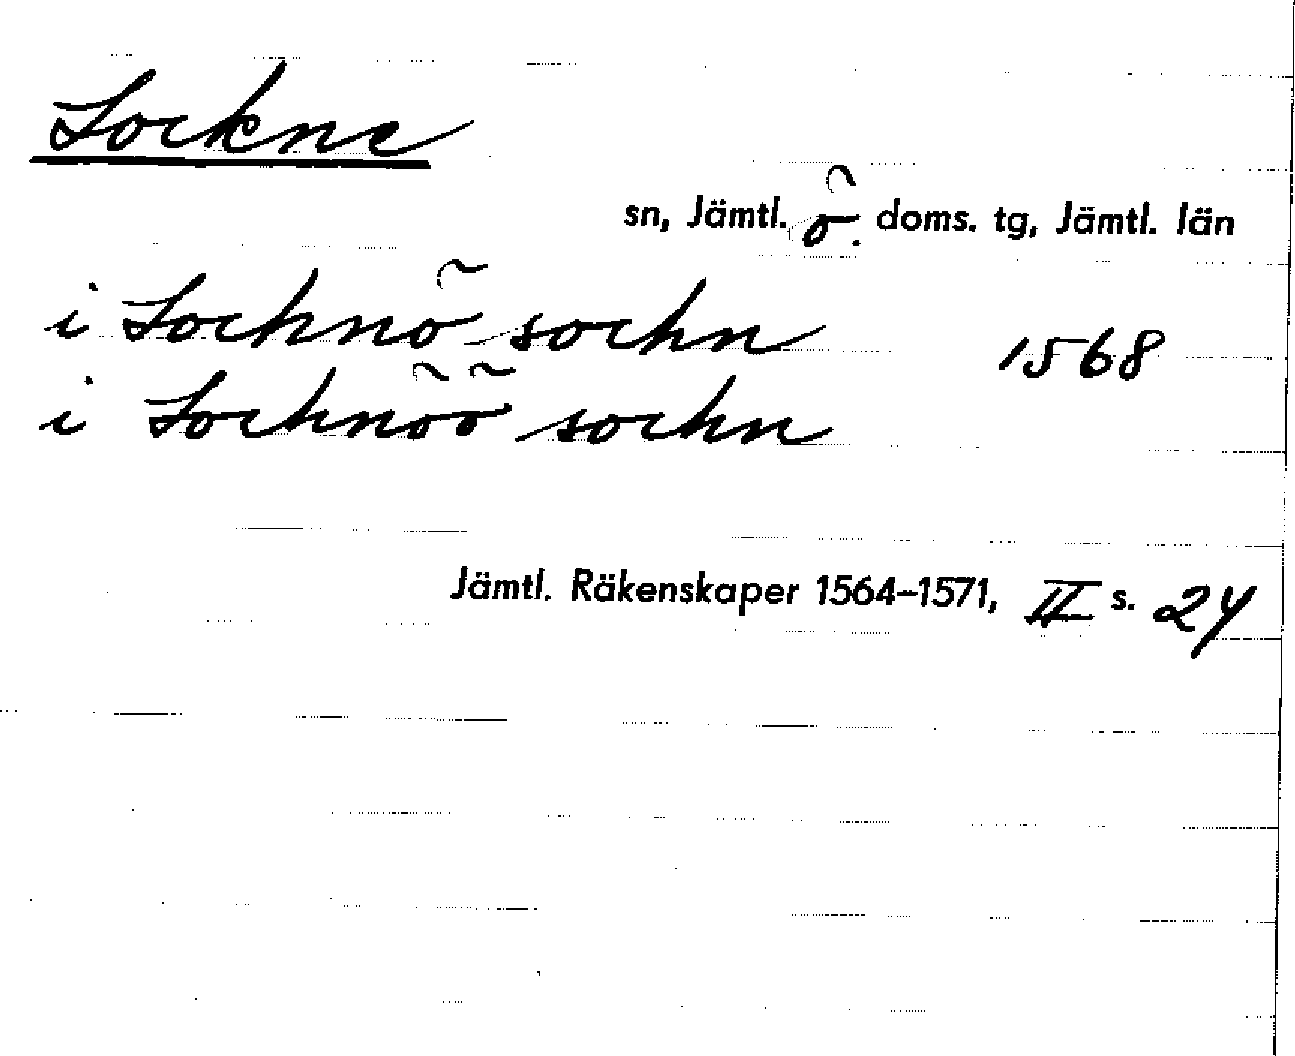 Lockne
sn, Jämtl. ö. doms. tg, Jämtl. län
i Locknö sochn 1568
i Locknöö sochn
Jämtl. Räkenskaper 1564–1571, II s. 24